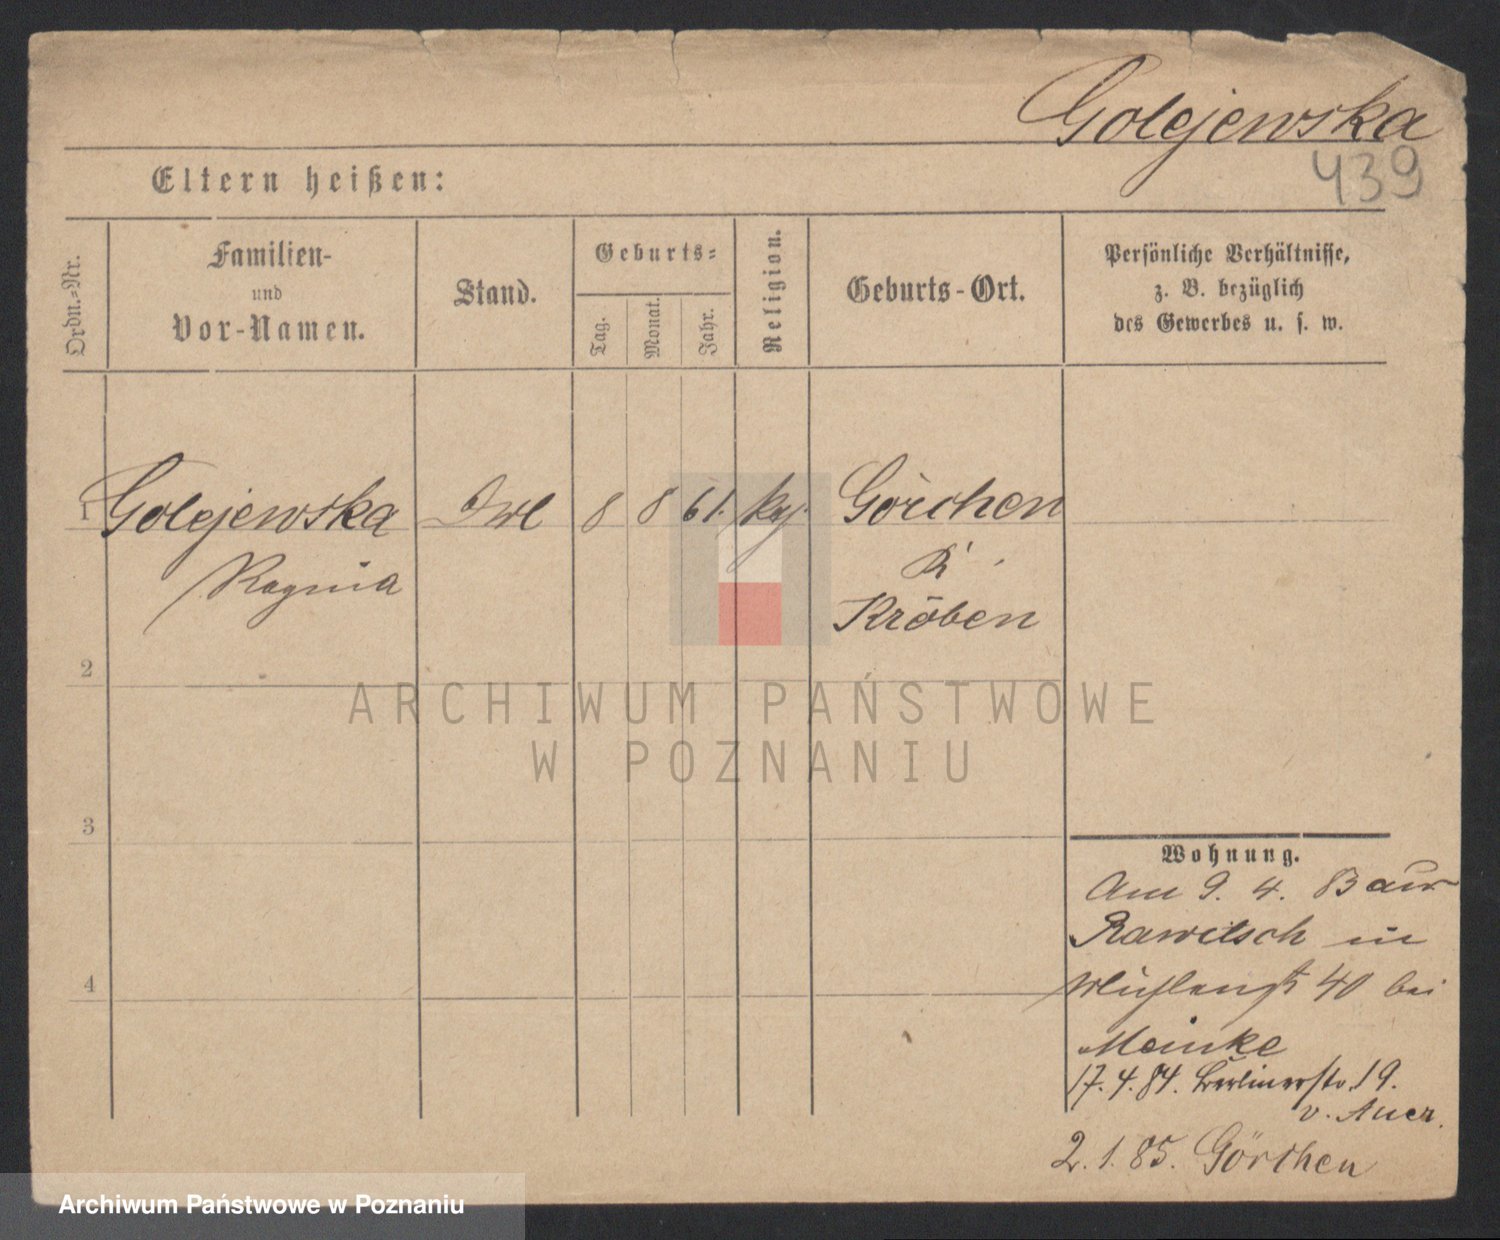 Golejewska
439
Eltern heißen:
Ordn.-Nr.
Familien-
und
Vor-Namen.
Stand.
Geburts-
Tag.
Monat.
Jahr.
Religion.
Geburts-Ort.
Persönliche Verhältnisse,
z. B. bezüglich
des Gewerbes u. s. w.
1 Golejewska 8 8 61. Görchen
K
Kröben
2
ARCHIWUM PAŃSTWOWE
W POZNANIU
3
Wohnung.
Am 9. 4. 83 aus
Rawitsch in
40 bei
4
Meinke
17. 4. 84. Berlinerstr. 19.
v. Auer.
2. 1. 85. Görchen
Archiwum Państwowe w Poznaniu